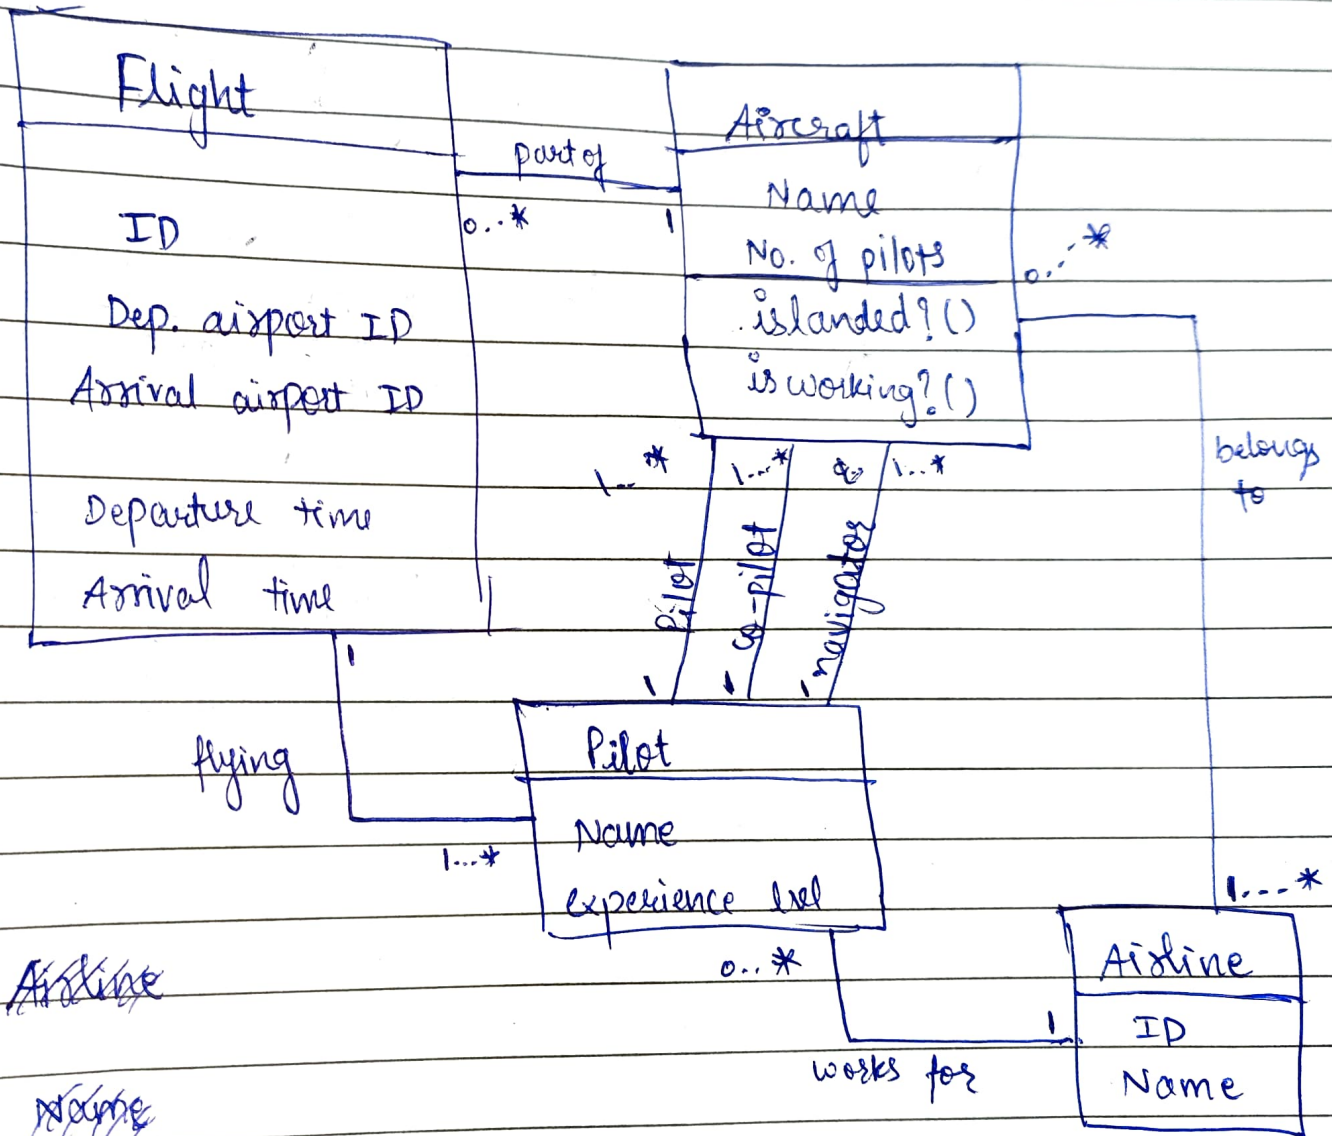 Flight
ID
Dep. airport ID
Arrival airport ID
Departure time
Arrival time
part of
0..*
1
Aircraft
Name
No. of pilots
is landed?()
is working?()
0...*
belongs
to
1...*
1...*
1...*
1...*
Pilot
co-pilot
navigator
1
1
1
1
flying
1...*
Pilot
Name
experience lvel
0..*
1
works for
Airline
ID
Name
Airline
Name